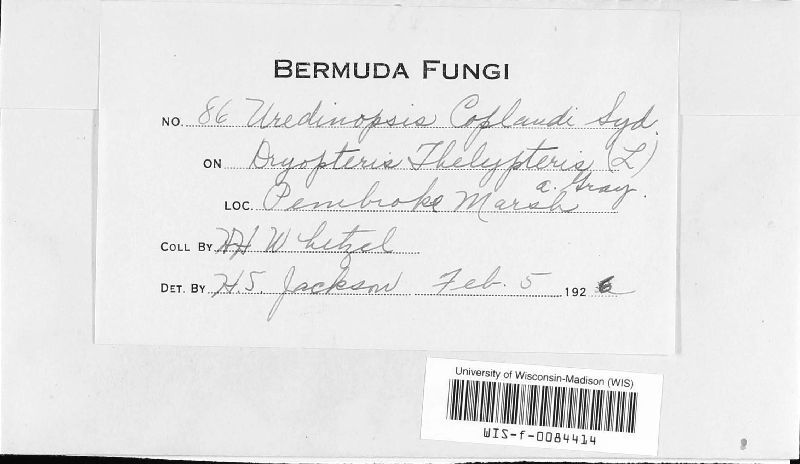 BERMUDA FUNGI
NO. 86 Uredinopsis Coplandi Syd.
ON Dryopteris Thelypteris (L)
a. Gray.
LOC. Pembroke Marsh
COLL BY HH Whetzel
DET. BY H.S. Jackson Feb. 5 1926
University of Wisconsin-Madison (WIS)
WIS-f-0084414